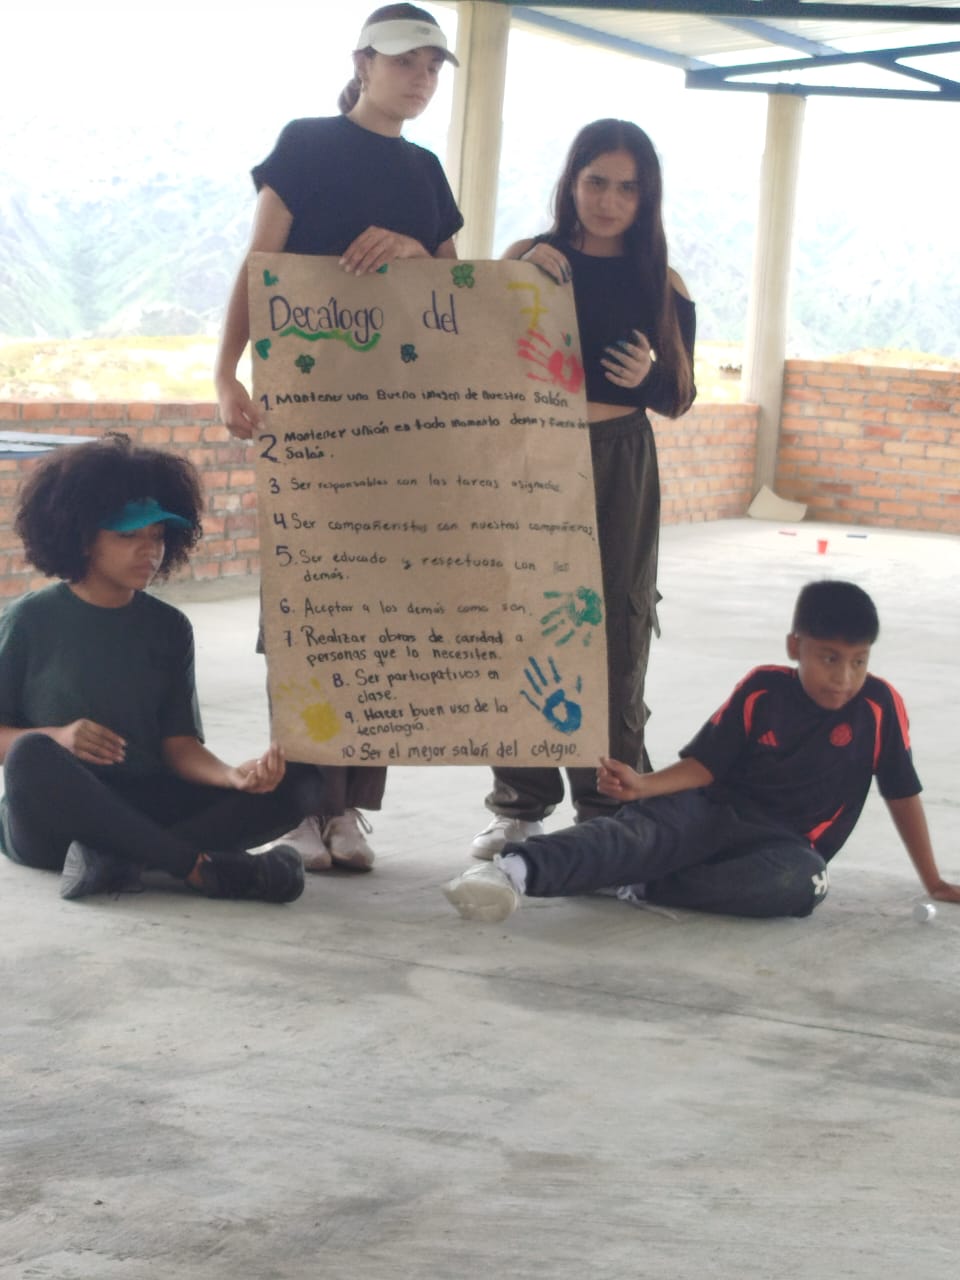 Decálogo del 7
1. Mantener una Buena imagen de nuestro Salón
2 Mantener unión en todo momento dentro y fuera del
Salón.
3 Ser responsables con las tareas asignadas
4 Ser compañeristas con nuestros compañeros.
5. Ser educado y respetuoso con los
demás.
6. Aceptar a los demás como son.
7. Realizar obras de caridad a
personas que lo necesiten.
8. Ser participativos en
clase.
9. Hacer buen uso de la
tecnología.
10. Ser el mejor salón del colegio.